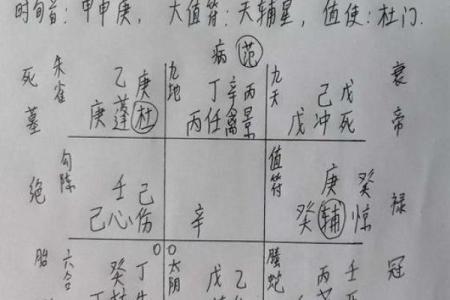 时旬首：甲申庚，大值符：天辅星，值使：杜门.
病 范
死 朱雀 乙庚 九地 丁辛丙 九天 己戊 衰
墓 庚蓬杜 丙任禽景 戊冲死 帝
勾陈 壬己 值符 庚癸
绝 己心伤 辛 癸辅惊 禄
胎 六合 癸丁 太阴 戊乙 螣蛇 丙壬 冠